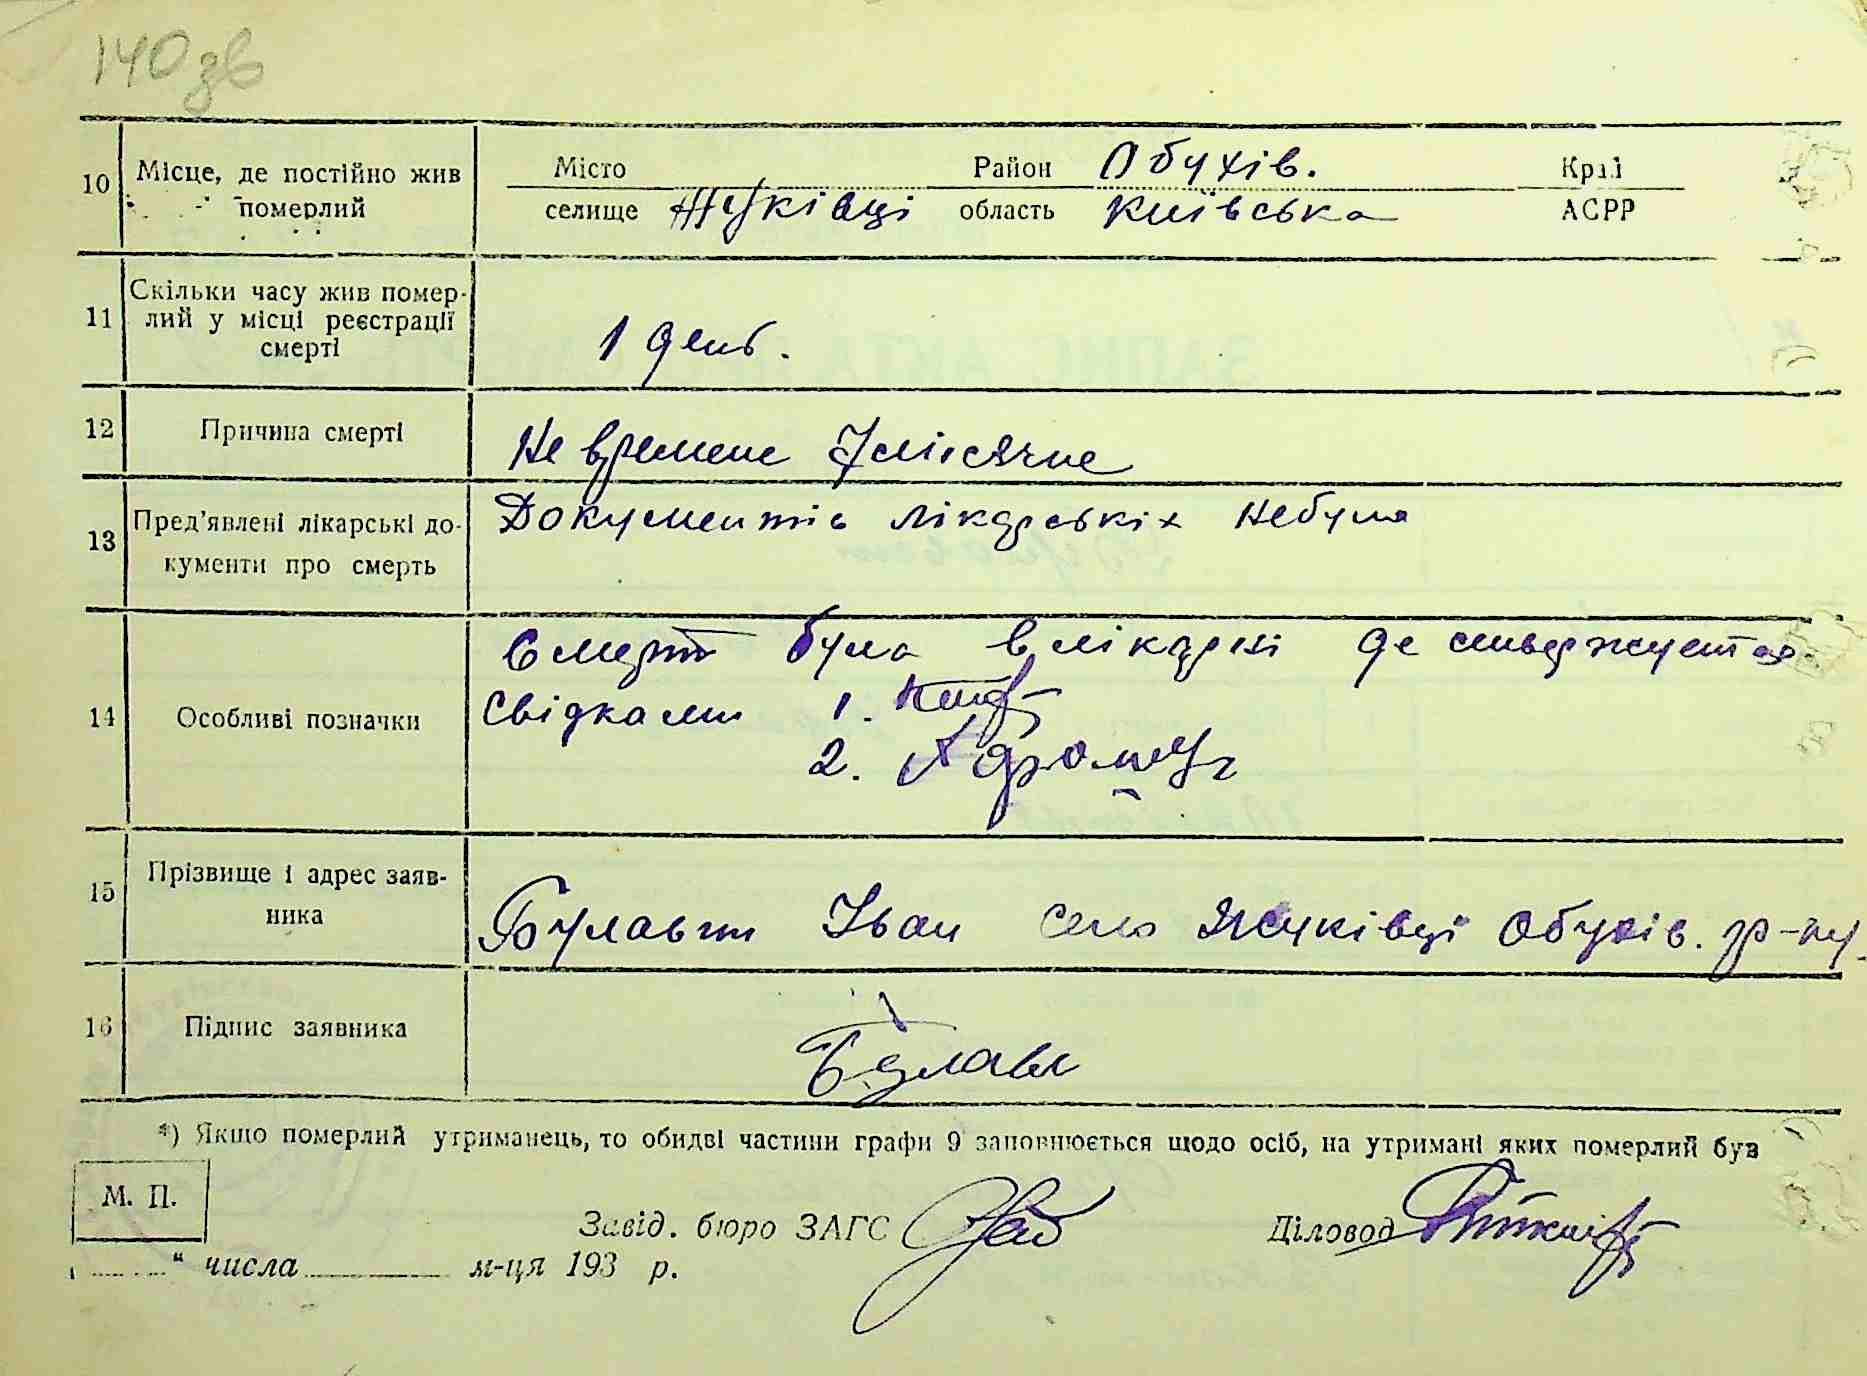 140 зв
10 Місце, де постійно жив померлий
Місто Район Обухів. Край
селище Жуківці область Київська АСРР
11 Скільки часу жив помер-
лий у місці реєстрації
смерті
1 день.
12 Причина смерті
Не времене 7 місячне
13 Пред'явлені лікарські до-
кументи про смерть
Документів лікарських небуло
14 Особливі позначки
Смерть була в лікарні де ствержується
свідками 1.
2.
15 Прізвище і адрес заяв-
ника
Булавин Іван село Жуківці Обухів. р-ну.
16 Підпис заявника
Булави
*) Якщо померлий утриманець, то обидві частини графи 9 заповнюється щодо осіб, на утримані яких померлий був
М. П.
Завід. бюро ЗАГС Діловод
" числа м-ця 193 р.